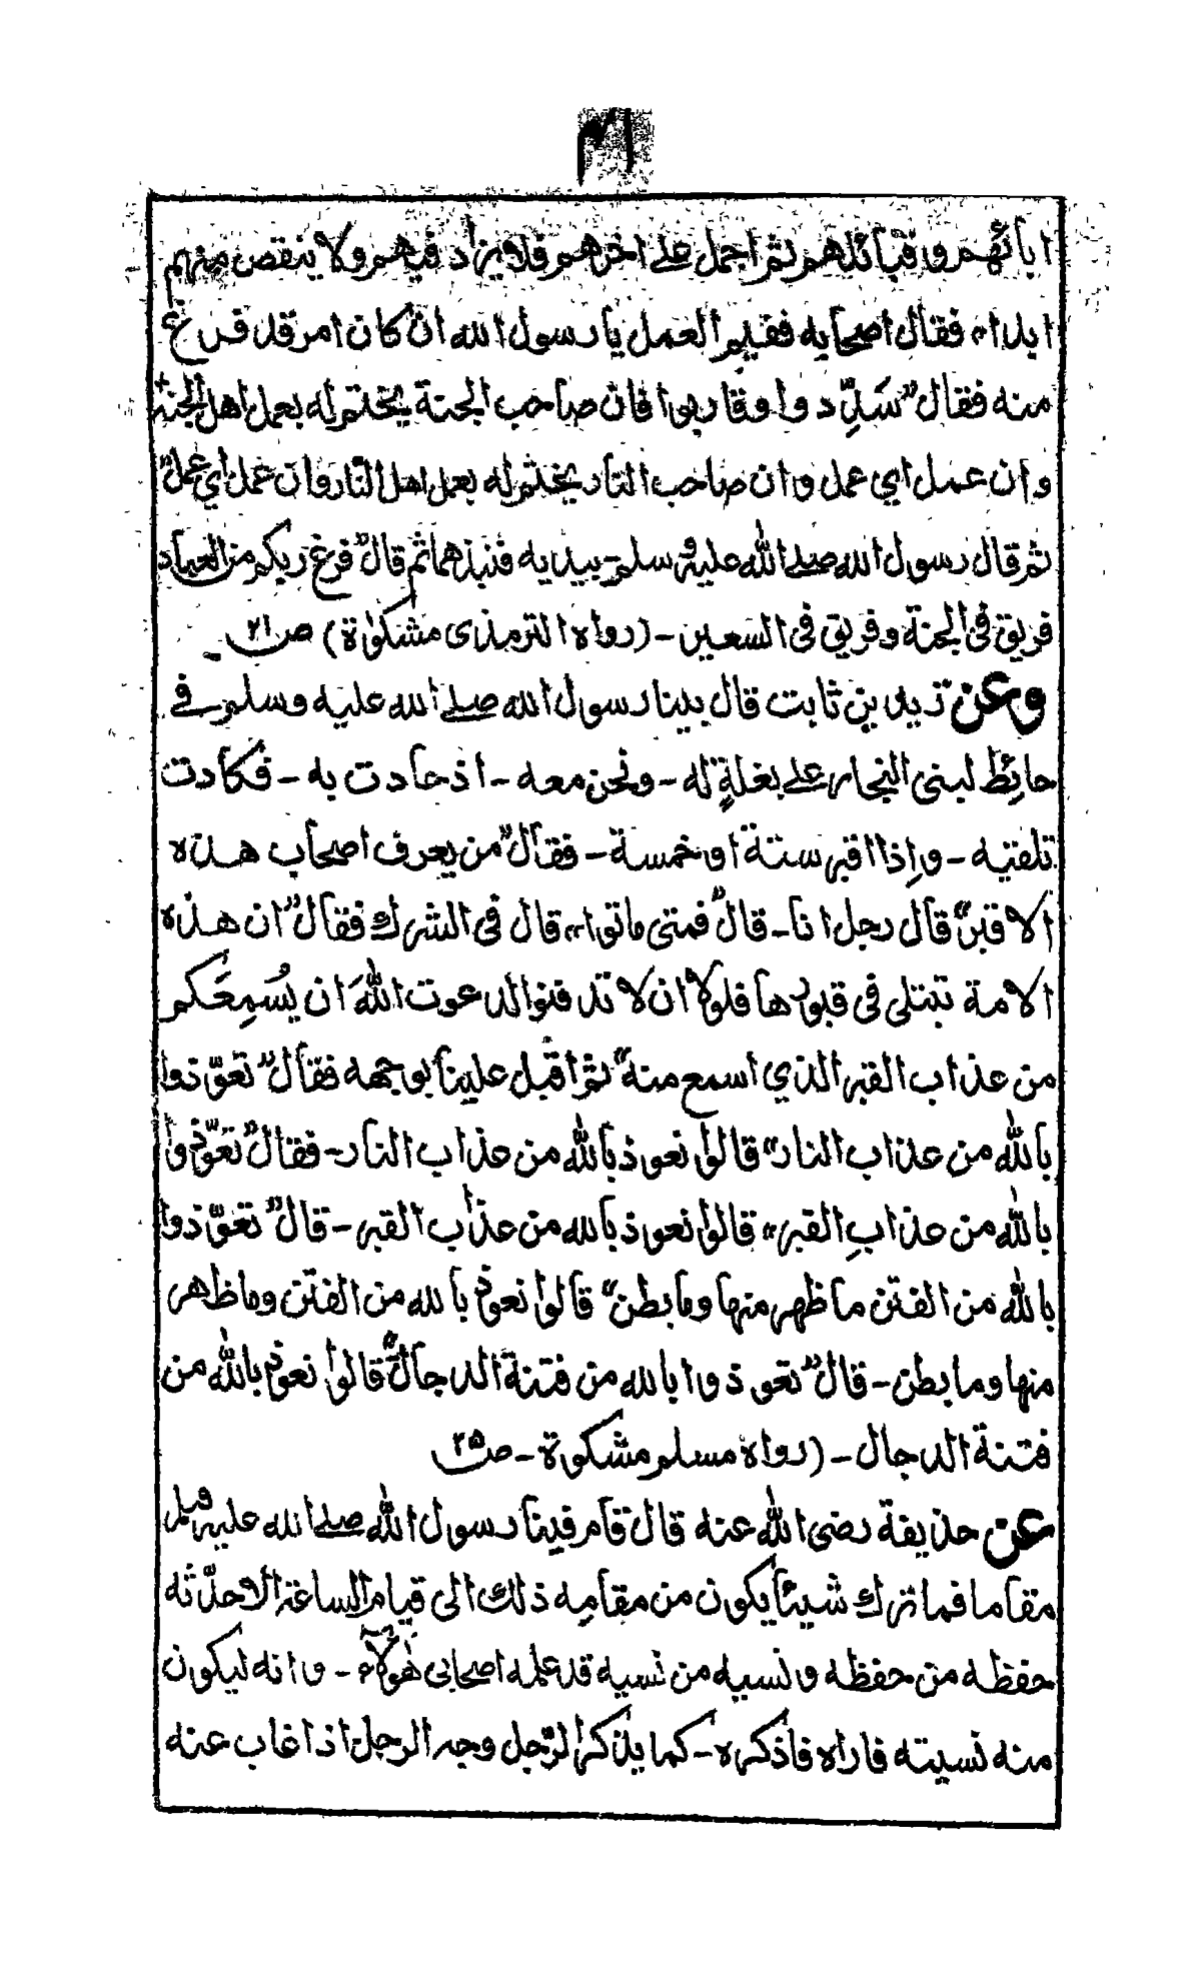 ابائهم و قبائلهم ثم اجمل على اخرهم فلا يزاد فيهم ولا ينقص منهم
ابدا" فقال اصحابه ففيم العمل يا رسول الله ان كان امر قد فرغ
منه فقال "سَدِّدوا وقاربوا فان صاحب الجنة يختم له بعمل اهل الجنة
وان عمل اي عمل وان صاحب النار يختم له بعمل اهل النار وان عمل اي عمل"
ثم قال رسول الله صلى الله عليه وسلم بيديه فنبذهما ثم قال "فرغ ربكم من العباد
فريق في الجنة وفريق في السعير - (رواه الترمذى مشكوٰة) ص ٢١ -
وعن زيد بن ثابت قال بينا رسول الله صلى الله عليه وسلم في
حائِطٍ لبنى النجار على بغلةٍ له - ونحن معه - اذ حادت به - فكادت
تلقيه - واِذا اقبر ستة او خمسة - فقال "من يعرف اصحاب هذه
الاقبر" قال رجل انا - قال "فمتى ماتوا" قال فى الشرك فقال "ان هذه
الامة تبتلى فى قبورها فلولا ان لا تدفنوا لدعوت اللهَ ان يُسْمِعَكم
من عذاب القبر الذي اسمع منه" ثم اقبل علينا بوجهه فقال "تعوّذوا
بالله من عذاب النار" قالوا نعوذ بالله من عذاب النار - فقال "تعوّذوا
بالله من عذابِ القبر" قالوا نعوذ بالله من عذاب القبر - قال "تعوّذوا
بالله من الفتن ما ظهر منها وما بطن" قالوا نعوذ بالله من الفتن وما ظهر
منها وما بطن - قال "تعوذوا بالله من فتنة الدجال" قالوا نعوذ بالله من
فتنة الدجال - (رواه مسلم مشكوة - ص ٢٥
عن حذيفة رضى الله عنه قال قام فينا رسول الله صلى الله عليه وسلم
مقاما فما ترك شيئا يكون من مقامِه ذلك الى قيام الساعة الا حدّث به
حفظه من حفظه ونسيه من نسيه قد علمه اصحابى هٰؤلاء - وانه ليكون
منه نسيته فاراه فاذكره - كما يذكر الرّجل وجه الرجل اذا غاب عنه